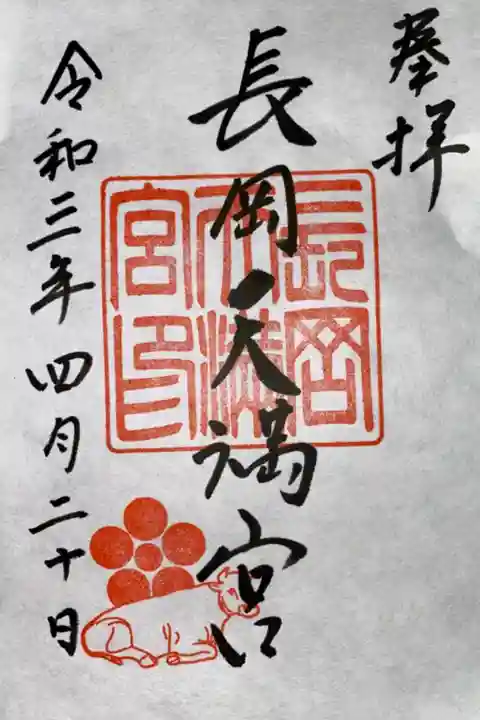 奉拝
長岡天満宮
長岡
天満
宮印
令和三年四月二十日